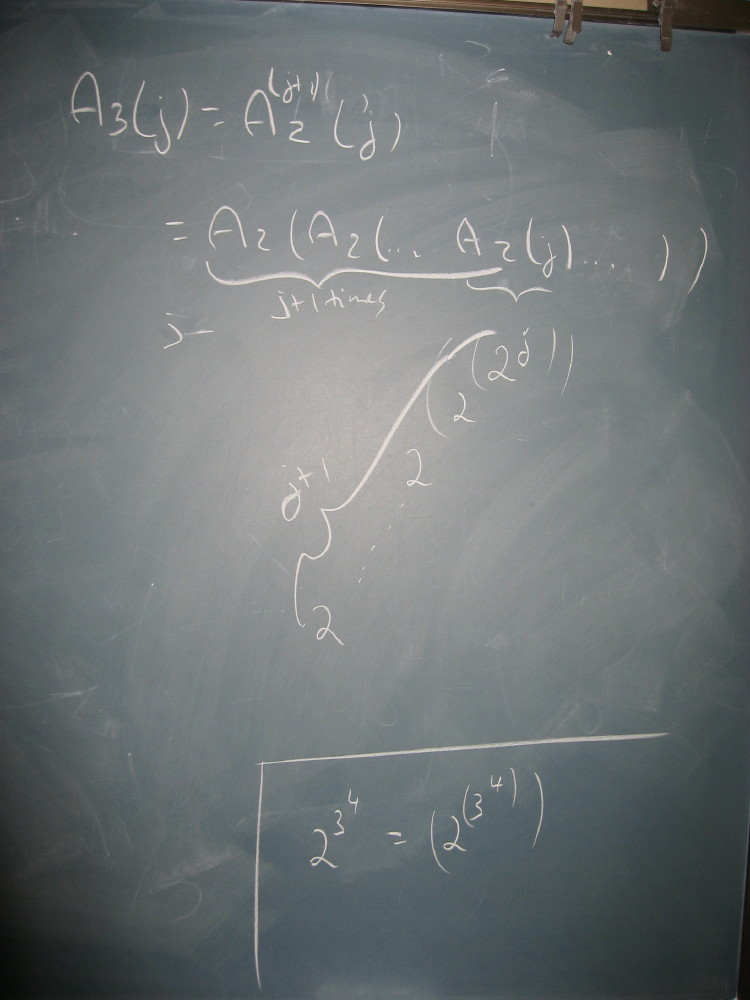 A₃(j) = A₂⁽ʲ⁺¹⁾(j)
= A₂(A₂(... A₂(j)....))
j+1 times
>
(2^(2^j))
2
j+1
2
2^3^4 = (2^(3^4))